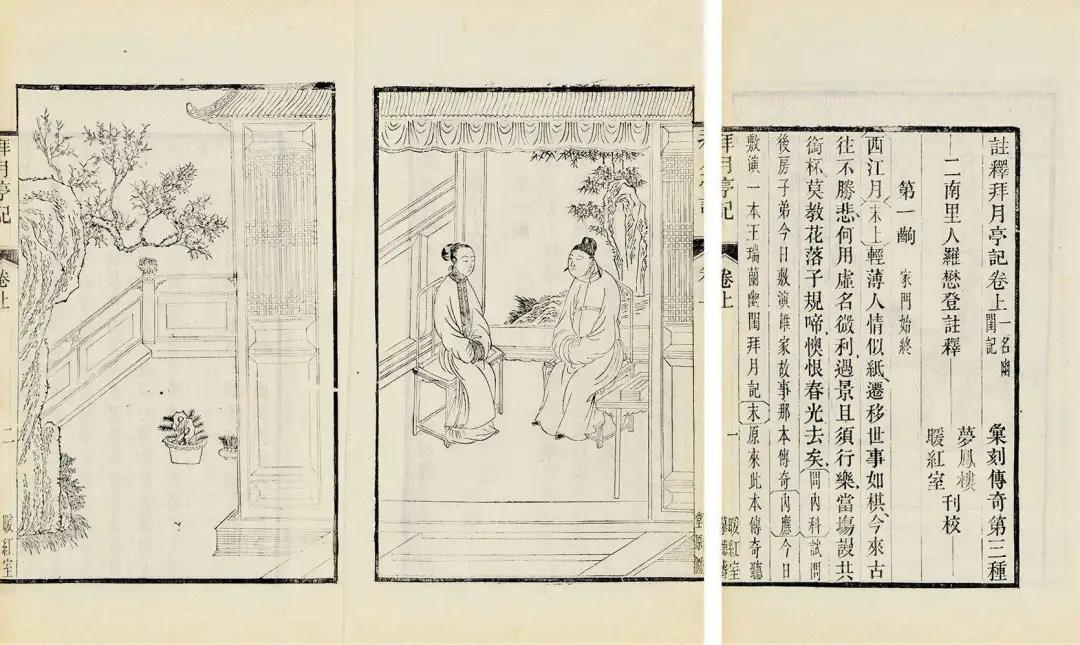 註釋拜月亭記卷上 一名幽閨記 彙刻傳奇第三種
二南里人羅懋登註釋
夢鳳樓
暖紅室
刊校
第一齣 家門始終
西江月末上輕薄人情似紙遷移世事如棋今來古
往不勝悲何用虛名微利遇景且須行樂當塲謾共
銜杯莫教花落子規啼懊恨春光去矣問內科試問
後房子弟今日敷演誰家故事那本傳奇內應今日
敷演一本王瑞蘭幽閨拜月記末原來此本傳奇聽
拜月亭記 卷上 一 暖紅室
拜月亭記 卷上 二 暖紅室